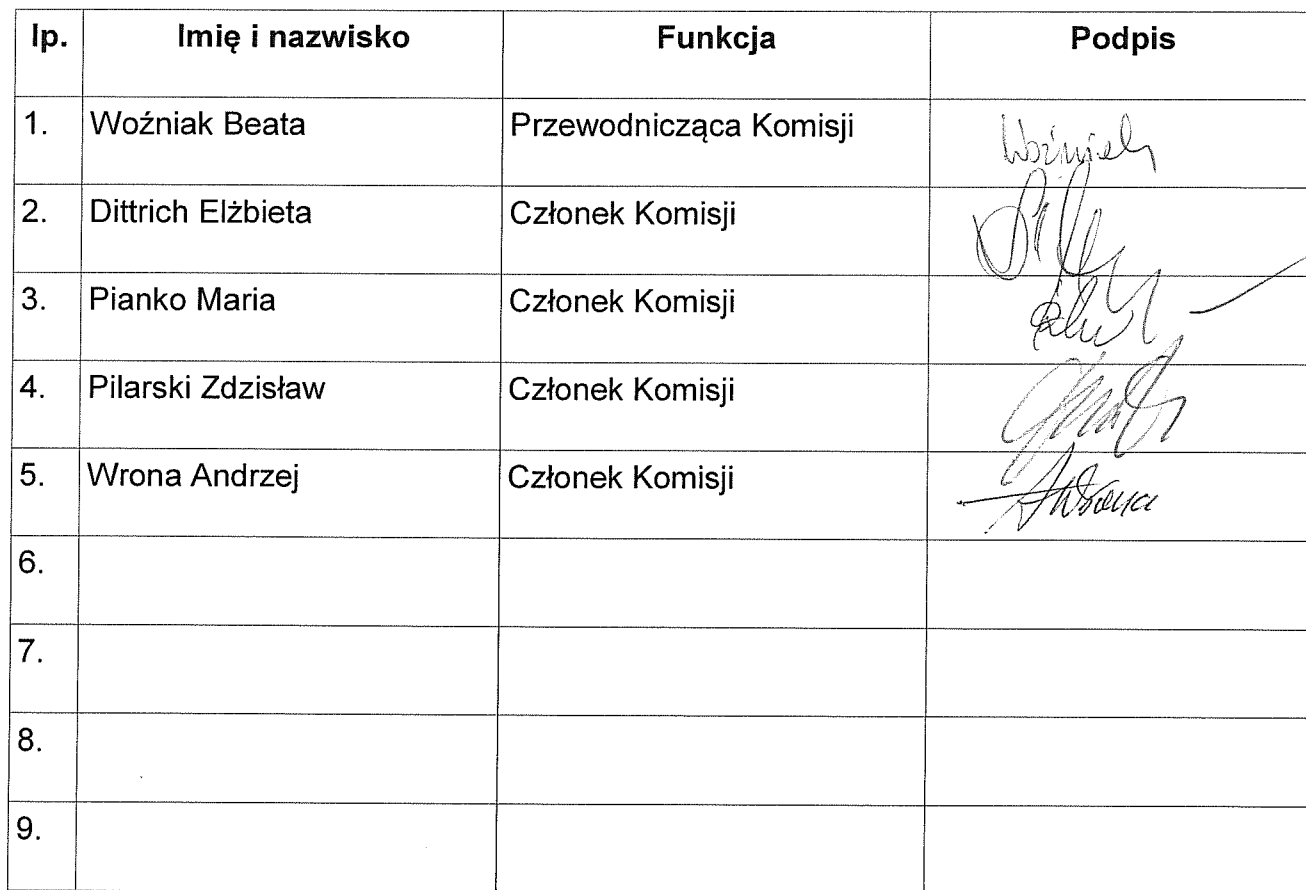 lp. Imię i nazwisko Funkcja Podpis
1. Woźniak Beata Przewodnicząca Komisji Woźniak
2. Dittrich Elżbieta Członek Komisji
3. Pianko Maria Członek Komisji
4. Pilarski Zdzisław Członek Komisji
5. Wrona Andrzej Członek Komisji AWrona
6.
7.
8.
9.